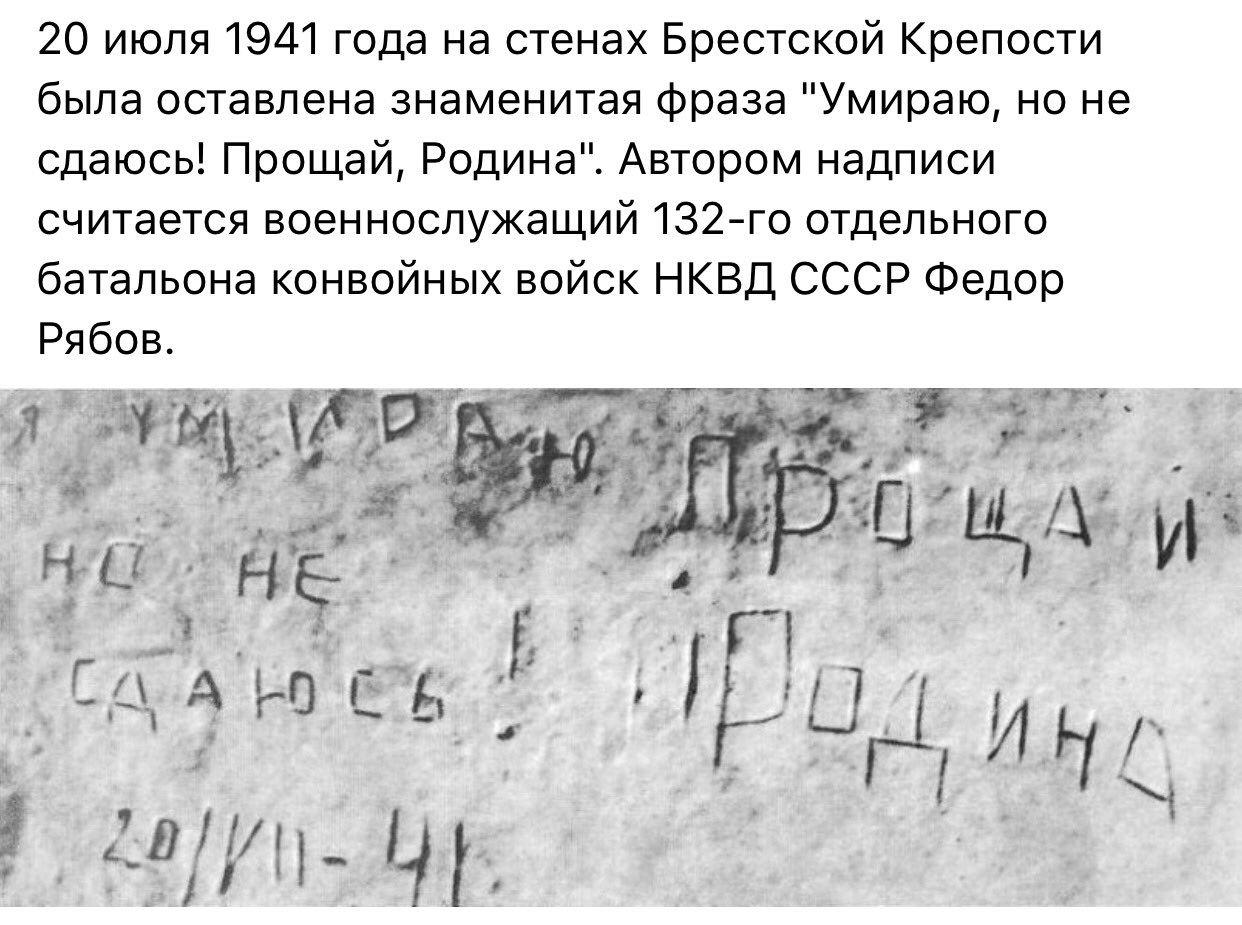 20 июля 1941 года на стенах Брестской Крепости
была оставлена знаменитая фраза "Умираю, но не
сдаюсь! Прощай, Родина". Автором надписи
считается военнослужащий 132-го отдельного
батальона конвойных войск НКВД СССР Федор
Рябов.
Я УМИРАЮ
НО НЕ
СДАЮСЬ!
20/VII-41.
ПРОЩАЙ
РОДИНА